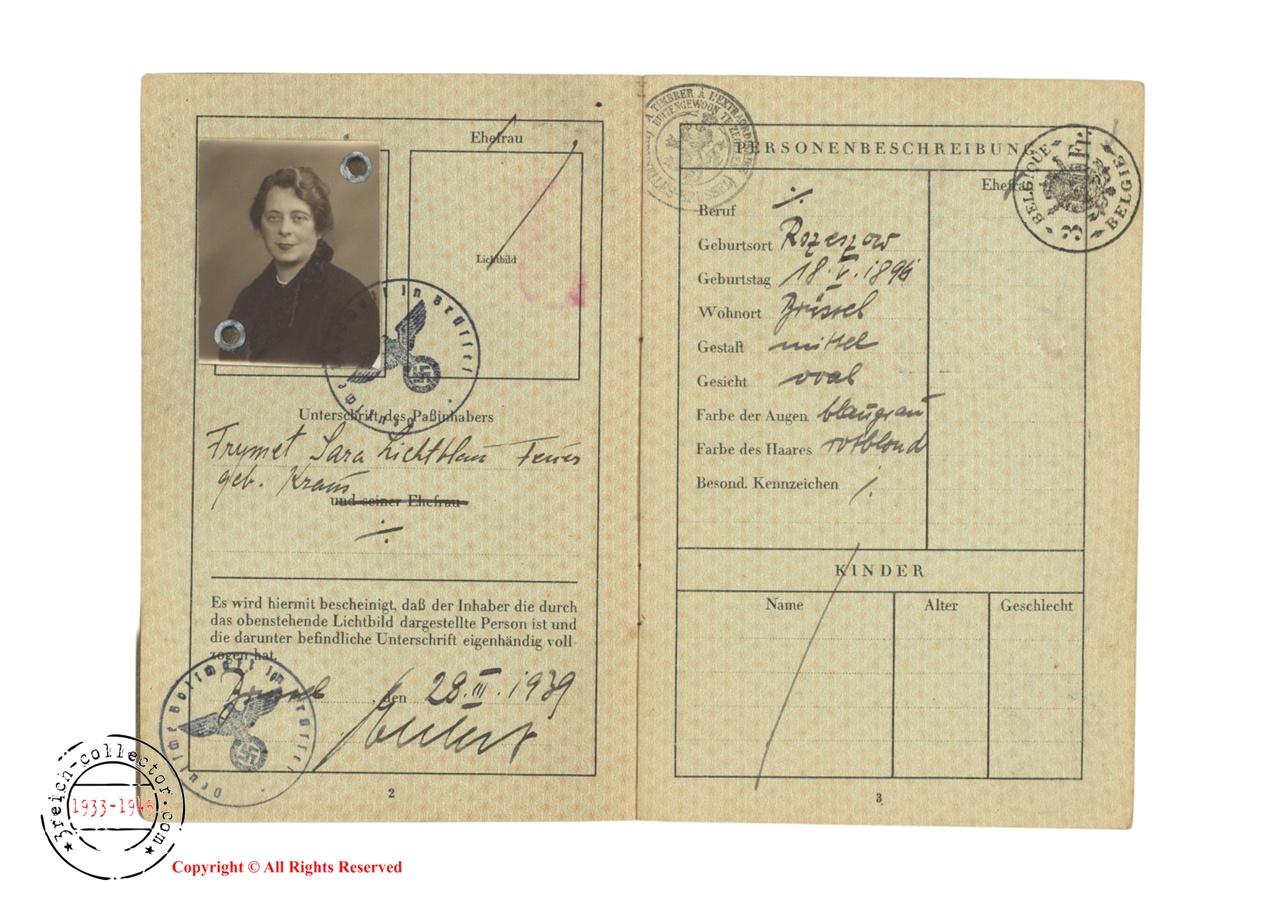 Ehefrau
Lichtbild
Deutsche Botschaft in Brüssel
Unterschrift des Paßinhabers
Frymet Sara Lichtblau Feuer
geb. Kraus
und seiner Ehefrau
Es wird hiermit bescheinigt, daß der Inhaber die durch
das obenstehende Lichtbild dargestellte Person ist und
die darunter befindliche Unterschrift eigenhändig voll-
zogen hat.
Brüssel, den 28.III.1939
in Brüssel
2
A TIMBRER À L'EXTRAORDINAIRE
BUITENGEWOON TE ZEGELEN
PERSONENBESCHREIBUNG
BELGIQUE 3 Fr. BELGIE
Ehefrau
Beruf ·/.
Geburtsort Rzeszow
Geburtstag 18.V.1896
Wohnort Brüssel
Gestalt mittel
Gesicht oval
Farbe der Augen blaugrau
Farbe des Haares rotblond
Besond. Kennzeichen ·/.
KINDER
Name Alter Geschlecht
3
3reich-collector.com
1933-1945
Copyright © All Rights Reserved